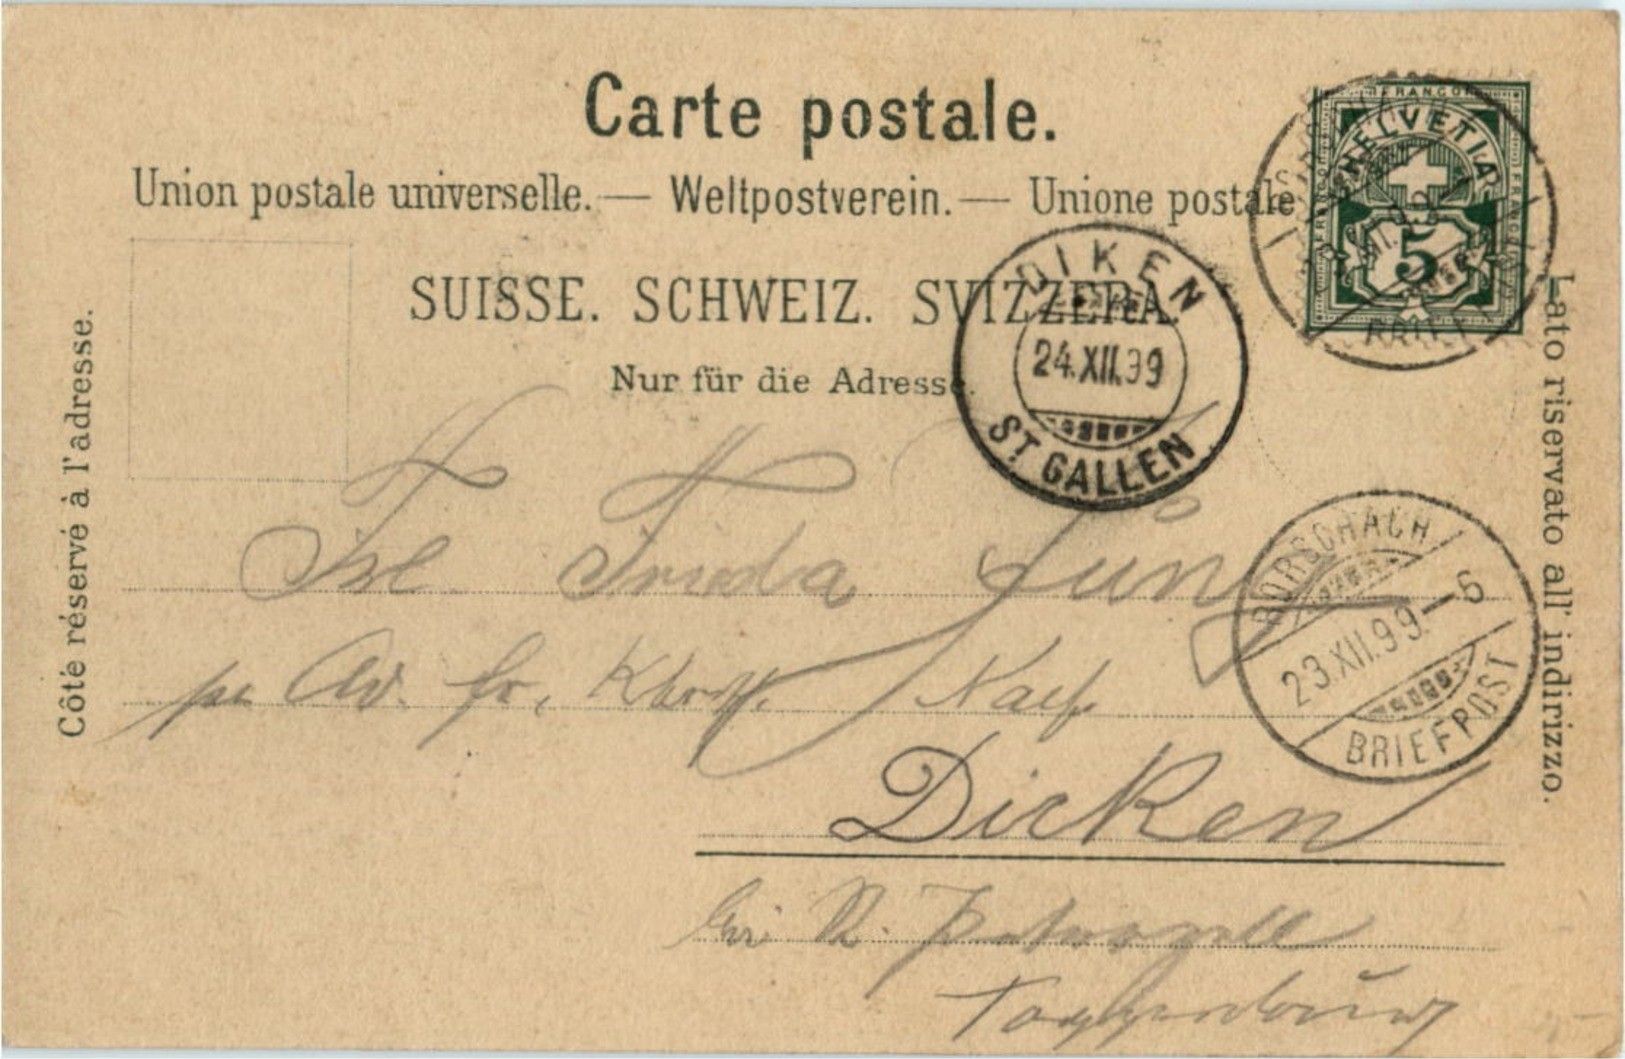 Carte postale.
Union postale universelle. — Weltpostverein. — Unione postale
SUISSE. SCHWEIZ. SVIZZERA.
Nur für die Adresse.
Côté réservé à l'adresse.
Lato riservato all' indirizzo.
FRANCO
HELVETIA
5
DIKEN
24.XII.99
ST. GALLEN
RORSCHACH
23.XII.99–6
BRIEFPOST
Frl Frieda
Naef.
Dicken
bei St. Peterzell
Toggenburg